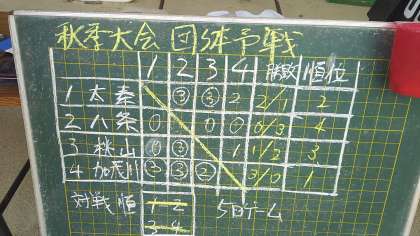 秋季大会 団体予戦
1 2 3 4 勝敗 順位
1 太秦 ③ ③ 2 2/1 2
2 八条 0 0 0 0/3 4
3 桃山 0 ③ 1 1/2 3
4 加茂川 ③ ③ ② 3/0 1
対戦順 1-2
3-4 5回ゲーム